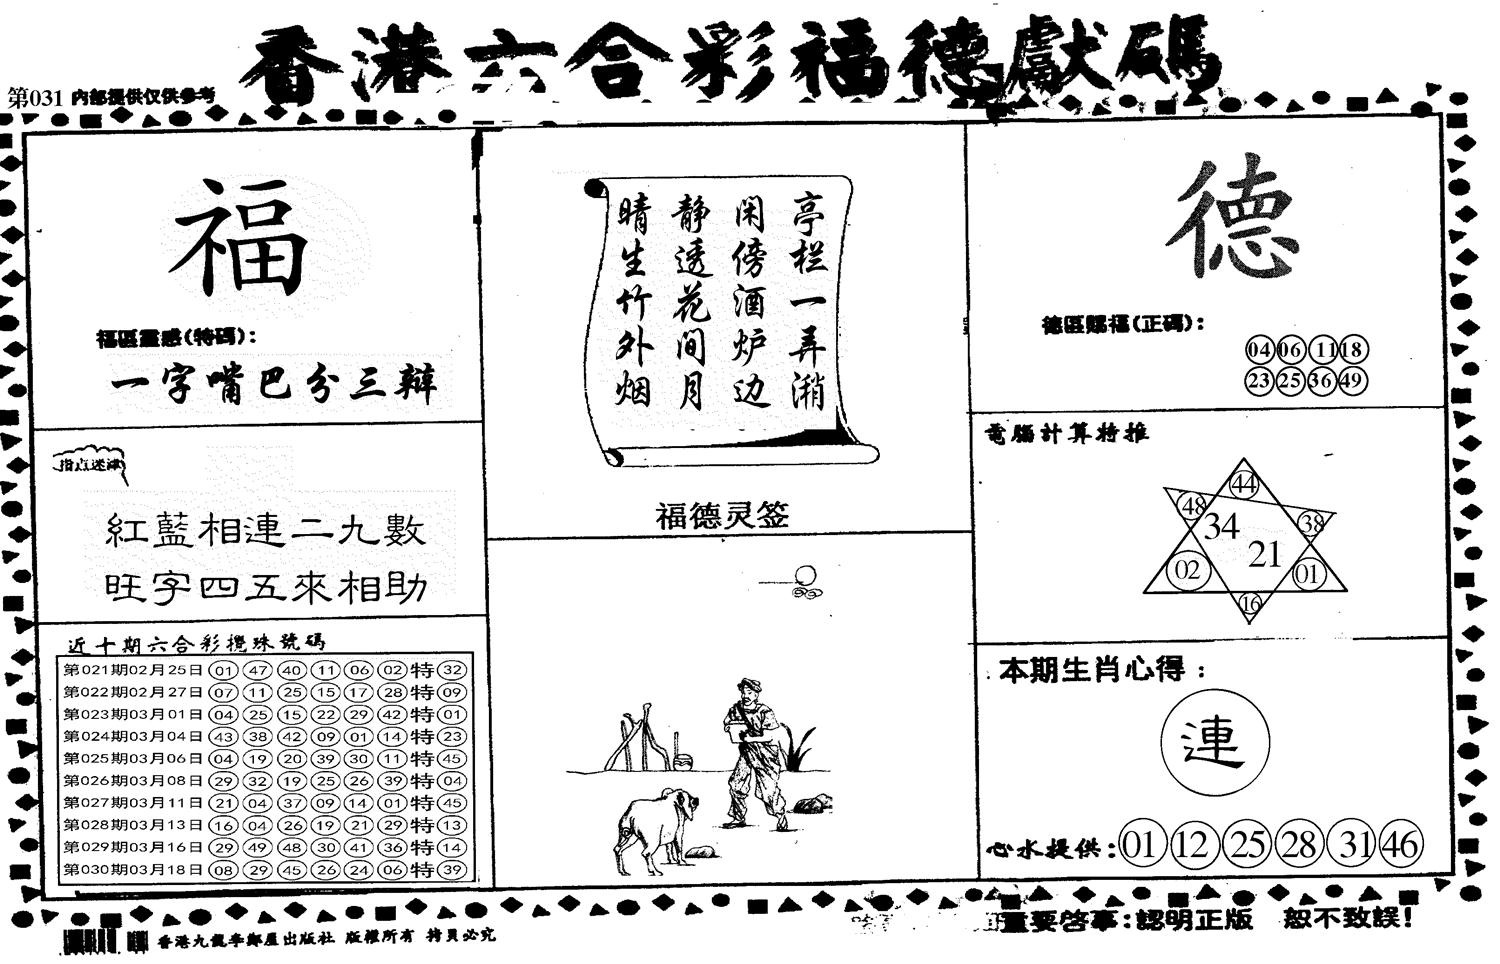 香港六合彩福德獻碼
第031 内部提供仅供参考
福
福區靈感(特碼):
一字嘴巴分三辯
指点迷津
紅藍相連二九數
旺字四五來相助
近十期六合彩攪珠號碼
第021期02月25日 01 47 40 11 06 02 特 32
第022期02月27日 07 11 25 15 17 28 特 09
第023期03月01日 04 25 15 22 29 42 特 01
第024期03月04日 43 38 42 09 01 14 特 23
第025期03月06日 04 19 20 39 30 11 特 45
第026期03月08日 29 32 19 25 26 39 特 04
第027期03月11日 21 04 37 09 14 01 特 45
第028期03月13日 16 04 26 19 21 29 特 13
第029期03月16日 29 49 48 30 41 36 特 14
第030期03月18日 08 29 45 26 24 06 特 39
亭栏一弄潲
闲傍酒炉边
静透花间月
晴生竹外烟
福德灵签
德
德區賜福(正碼):
04 06 11 18
23 25 36 49
電腦計算特推
44
48 38
34
21
02 01
16
本期生肖心得:
連
心水提供: 01 12 25 28 31 46
重要啓事:認明正版 恕不致誤!
香港九龍李鄭屋出版社 版權所有 拷貝必究